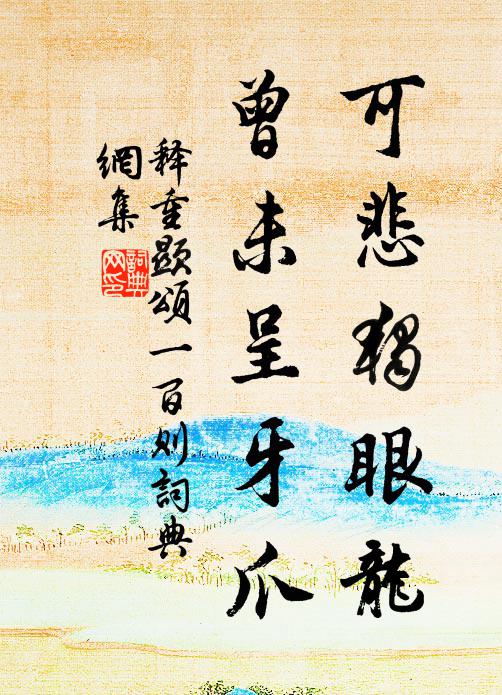 可悲獨眼龍
曾未呈牙爪
释重顯頌一百则詞典
網集
詞典
网印